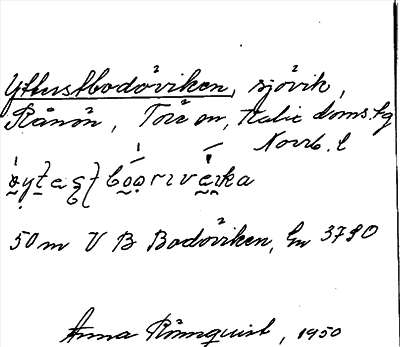 Ytterstbodöviken, sjövik,
Rånön, Töre sn, Kalix doms. tg
Norrb. l
50 m V B Bodöviken, En 3780
Anna Rönnquist, 1950